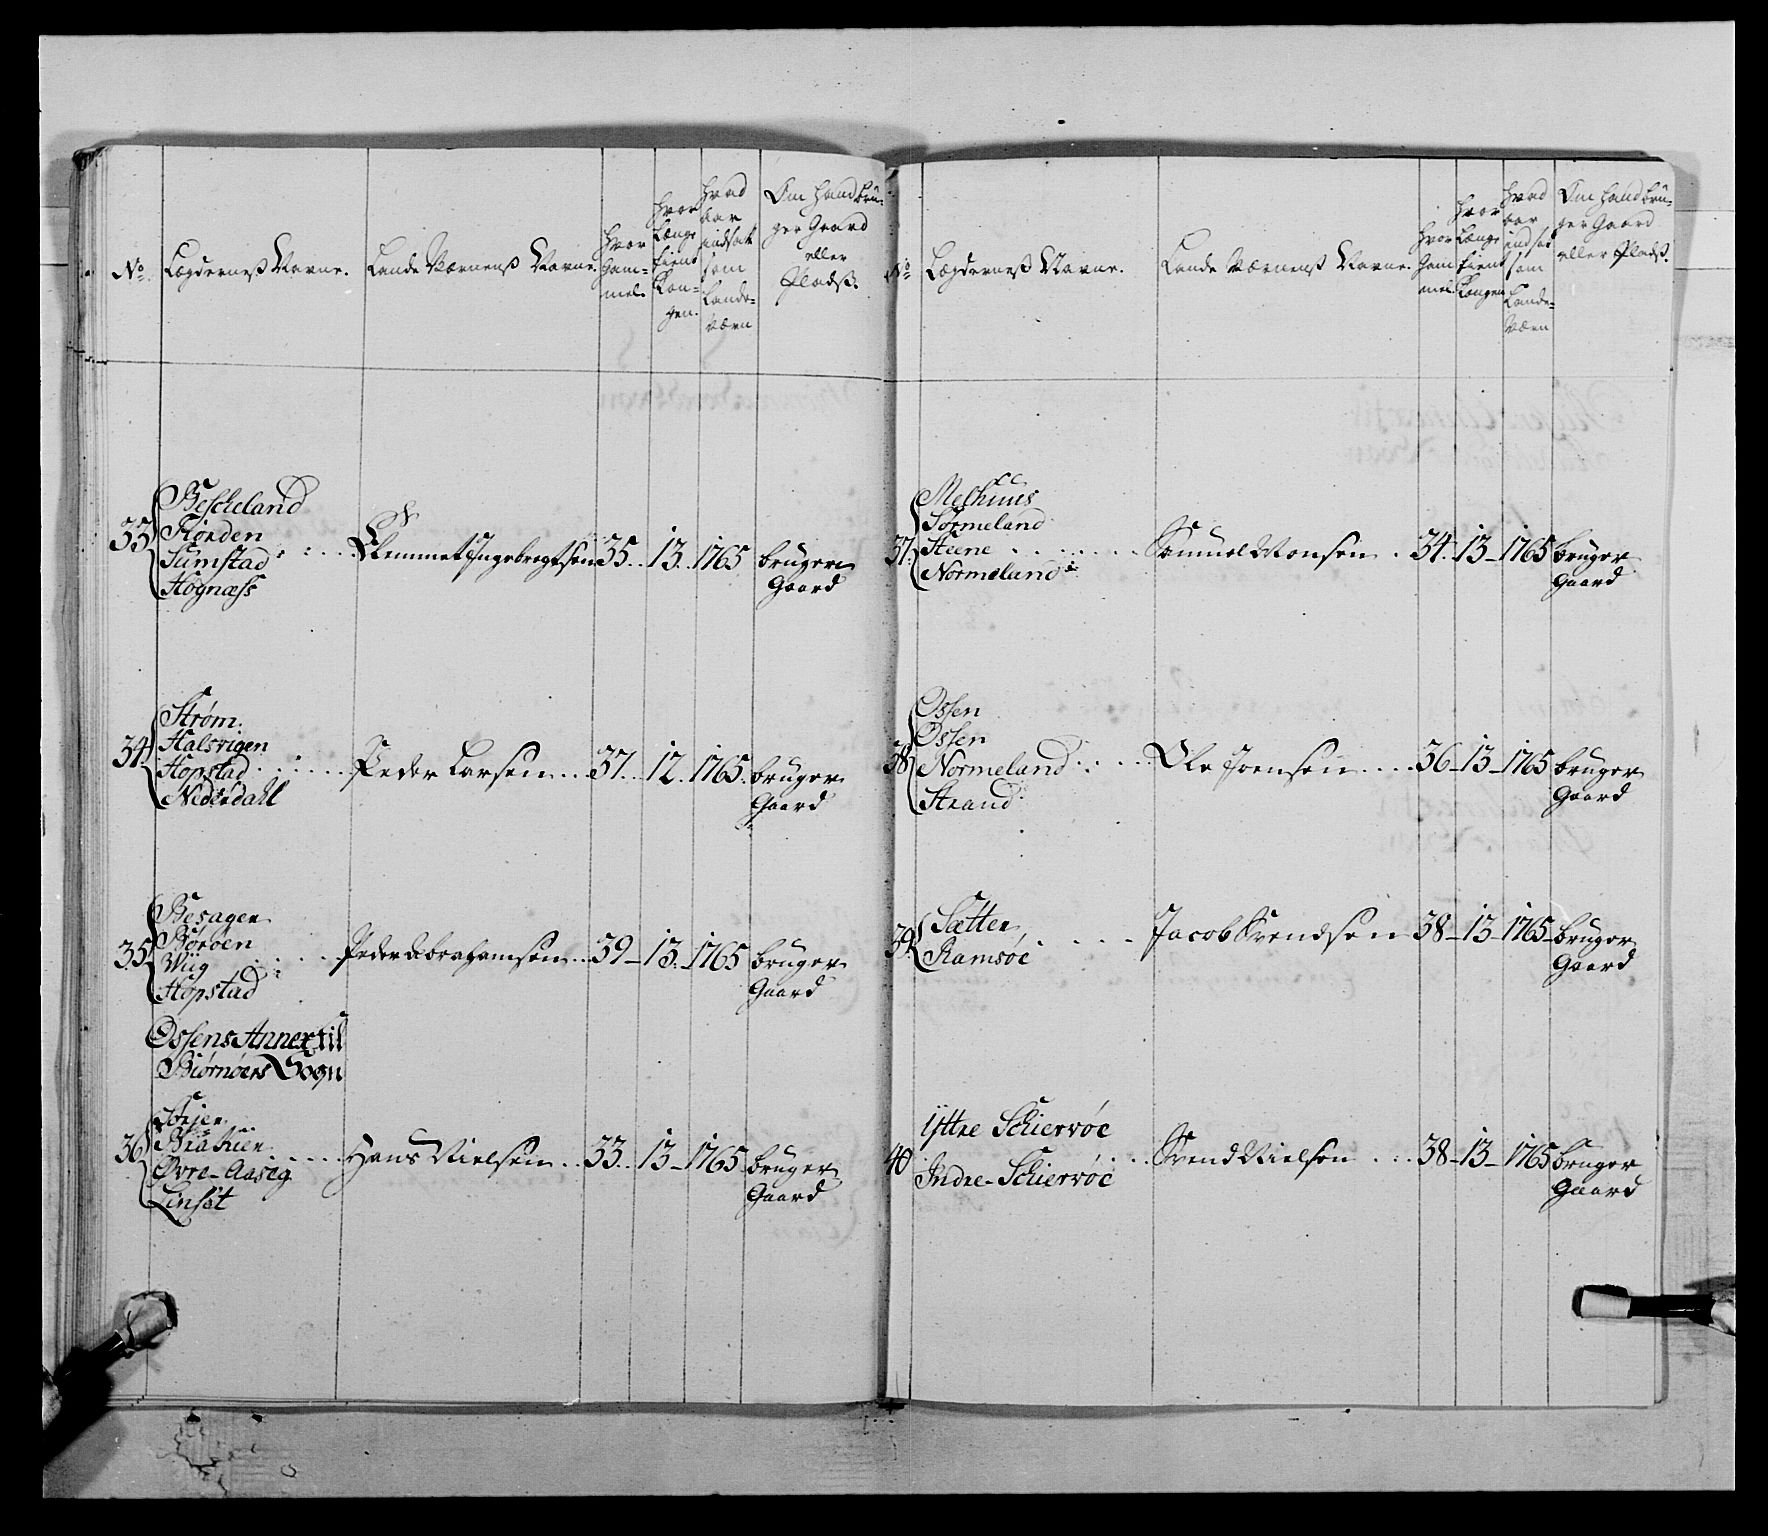 No.
Lægderness Navne.
Lande Værnenss Navne.
Hvor
Gam-
mel.
Hvor
Længe
tient
Kon-
gen.
Hvad
Aar
indsat
som
Lande-
Værn
Om Hand bru-
ger Gaard
eller
Pladss.
35
Bescheland
Fiørden
Sumstad
Hognæss
Ingebregtsen 35. 13. 1765 bruger
Gaard
34
Strøm.
Halsvigen
Hopstad
Nederdahl
Peder Larsen 37. 12. 1765. bruger
Gaard
35
Besagen
Børøen
Wiig
Hopstad
Peder Abrahamsen 39 - 13. - 1765 bruger
Gaard
Ossens Annex til
Biørnøers Sogn
36
Øvre-Aaseg
Linsöt
Hans Nielsen 33. 13 - 1765 bruger
Gaard
No.
Lægderness Navne.
Lande Værnenss Navne.
Hvor
Gam
mel.
Hvor
Længe
tient
Kongen
Hvad
Aar
indsat
som
Lande-
Værn
Om Hand bru-
ger Gaard
eller Pladss.
37.
Melhuus
Sørmeland
Steene
Normeland
Samuel Monsen 34. 13 - 1765 bruger
Gaard
38
Ossen
Ossen
Normeland
Strand
Ole Joensen 36 - 13 - 1765 bruger
Gaard
39.
Sætter
Ramsöe
Jacob Svendsen 38 - 13 - 1765 - bruger
Gaard
40
Ÿttre Schiervöe
Indre-Schiervöe
Svend Nielsen 38 - 13 - 1765 bruger
Gaard